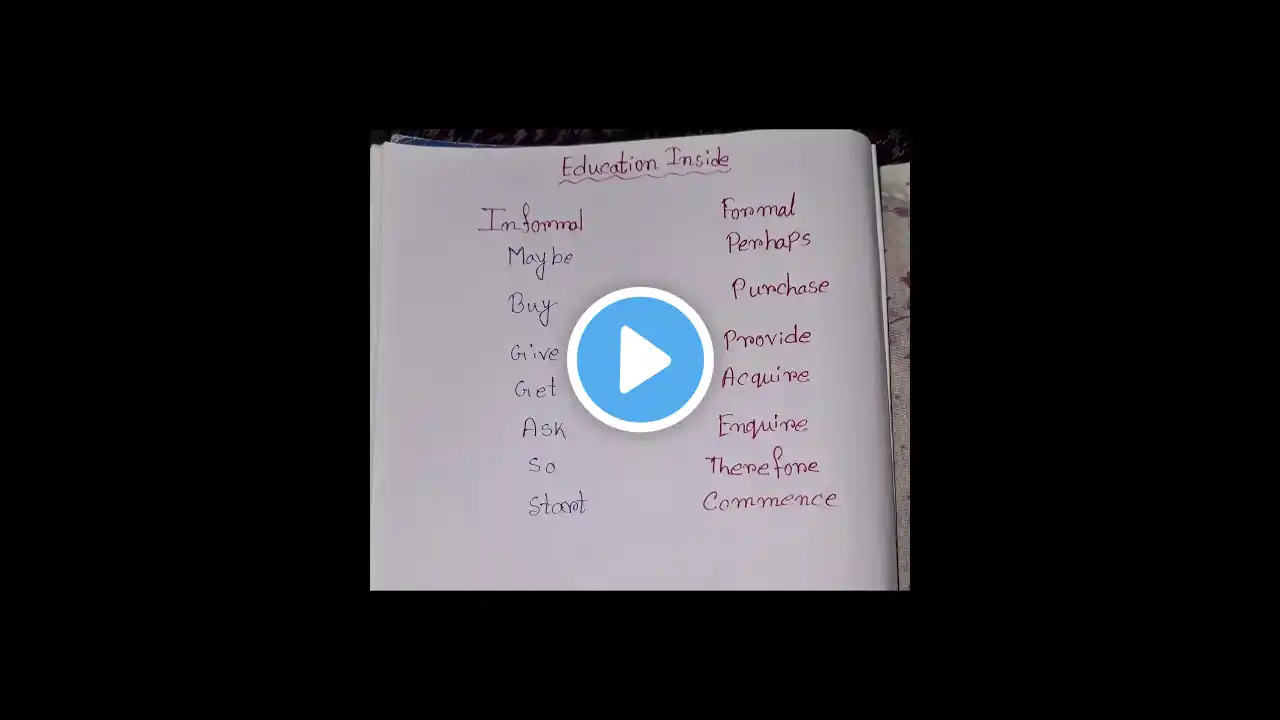 Education Inside
Informal Formal
Maybe Perhaps
Buy Purchase
Give Provide
Get Acquire
Ask Enquire
So Therefore
Start Commence